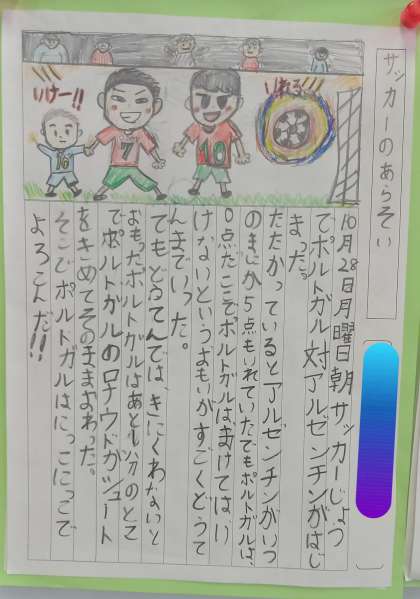 サッカーのあらそい
いけー!!
いれろー
7
10
16
10月28日月曜日朝サッカーじょう
でポルトガル対アルゼンチンがはじ
まった。
たたかっているとアルゼンチンがいつ
のまにか5点もいれていた。でもポルトガルは、
0点だこそポルトガルは、まけてはい
けないというおもいがすごくどうて
んきでいった。
でもどうてんでは、きにくわないと
おもったポルトガルはあと1分のとこ
でポルトガルのロナウドがシュート
をきめてそのままおわった。
そこでポルトガルはにっこにっこで
よろこんだ!!